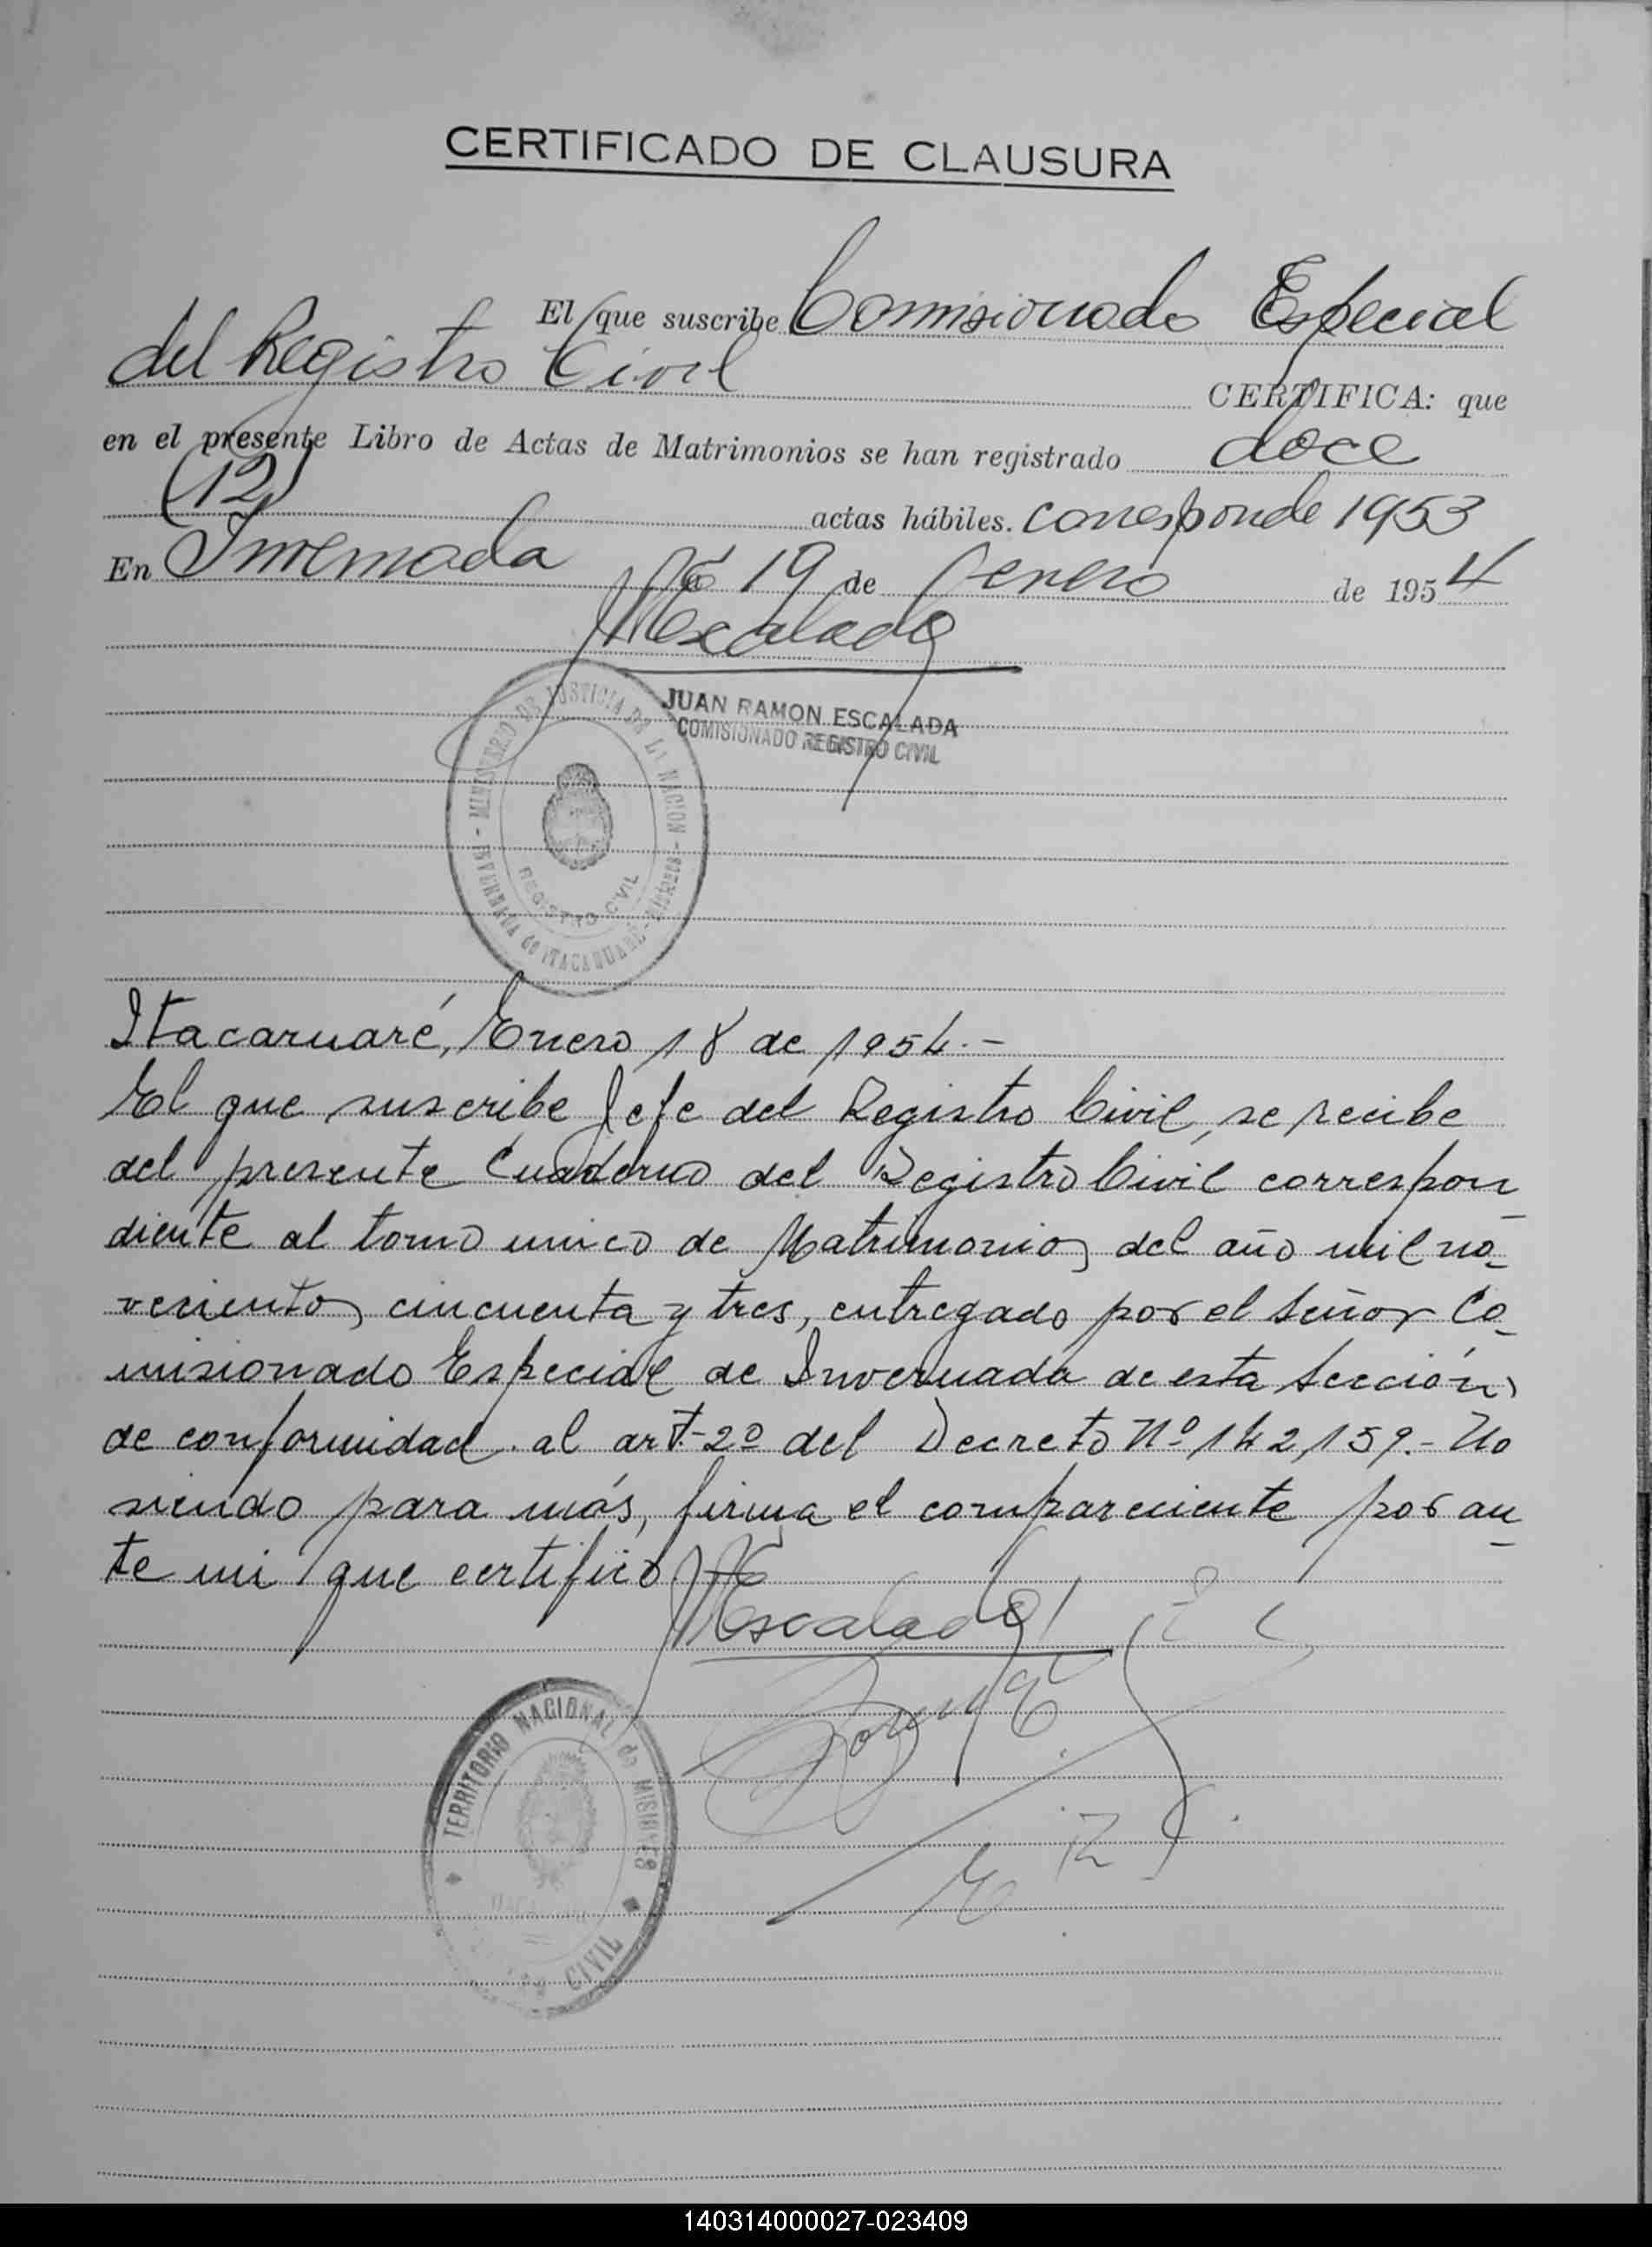 CERTIFICADO DE CLAUSURA
El que suscribe Comisionado Especial
del Registro Civil CERTIFICA: que
en el presente Libro de Actas de Matrimonios se han registrado doce
(12) actas hábiles. corresponde 1953
En Invernada a 19 de enero de 1954
Escalada
JUAN RAMON ESCALADA
COMISIONADO REGISTRO CIVIL
MINISTERIO DE JUSTICIA DE LA NACION - INVERNADA de ITACARUARÉ - Misiones -
REGISTRO CIVIL
Itacaruaré, Enero 18 de 1954.-
El que suscribe Jefe del Registro Civil, se recibe
del presente Cuaderno del Registro Civil correspon
diente al tomo unico de Matrimonios del año mil no-
vecientos cincuenta y tres, entregado por el Señor Co-
misionado Especial de Invernada de esta Sección,
de conformidad al art.-2º del Decreto Nº 142,159.- No
siendo para más, firma el compareciente por an
te mi que certifico
Escalada
TERRITORIO NACIONAL de MISIONES
CIVIL
140314000027-023409